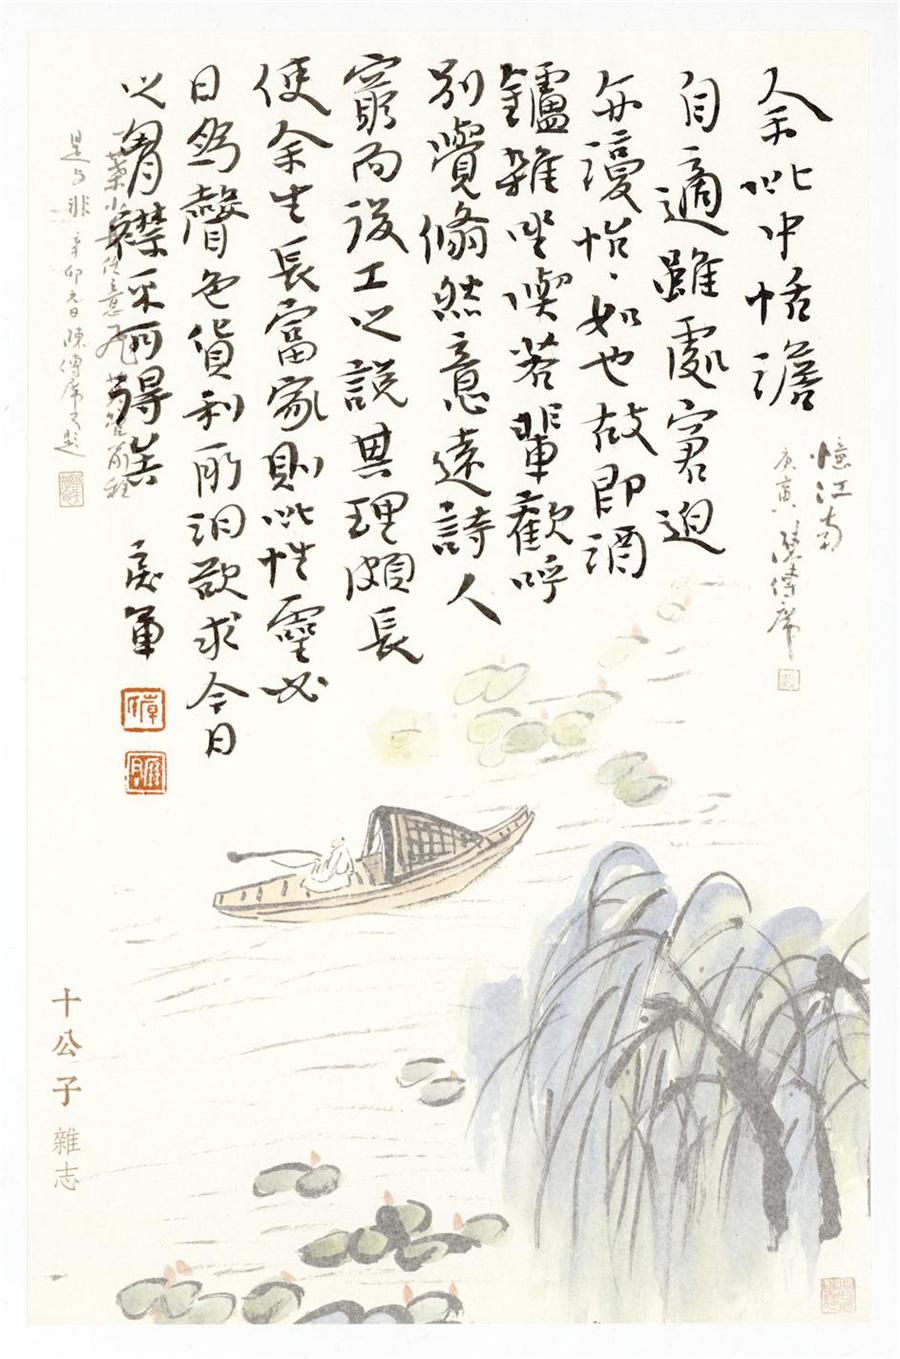 余此中恬澹
自適雖處窘迫
怡、如也故即酒
鑪雜坐喫茗輩歡呼
別覺翛然意遠詩人
窮而後工之說其理頗長
使余生長富家則此性靈必
日為聲色貨利所汩欲求今日
之胸襟不可得矣
憶江南
庚寅 陳傳席
葉小 任意飛莫管前程
是與非 辛卯元日陳傳席又題
十公子 雜志